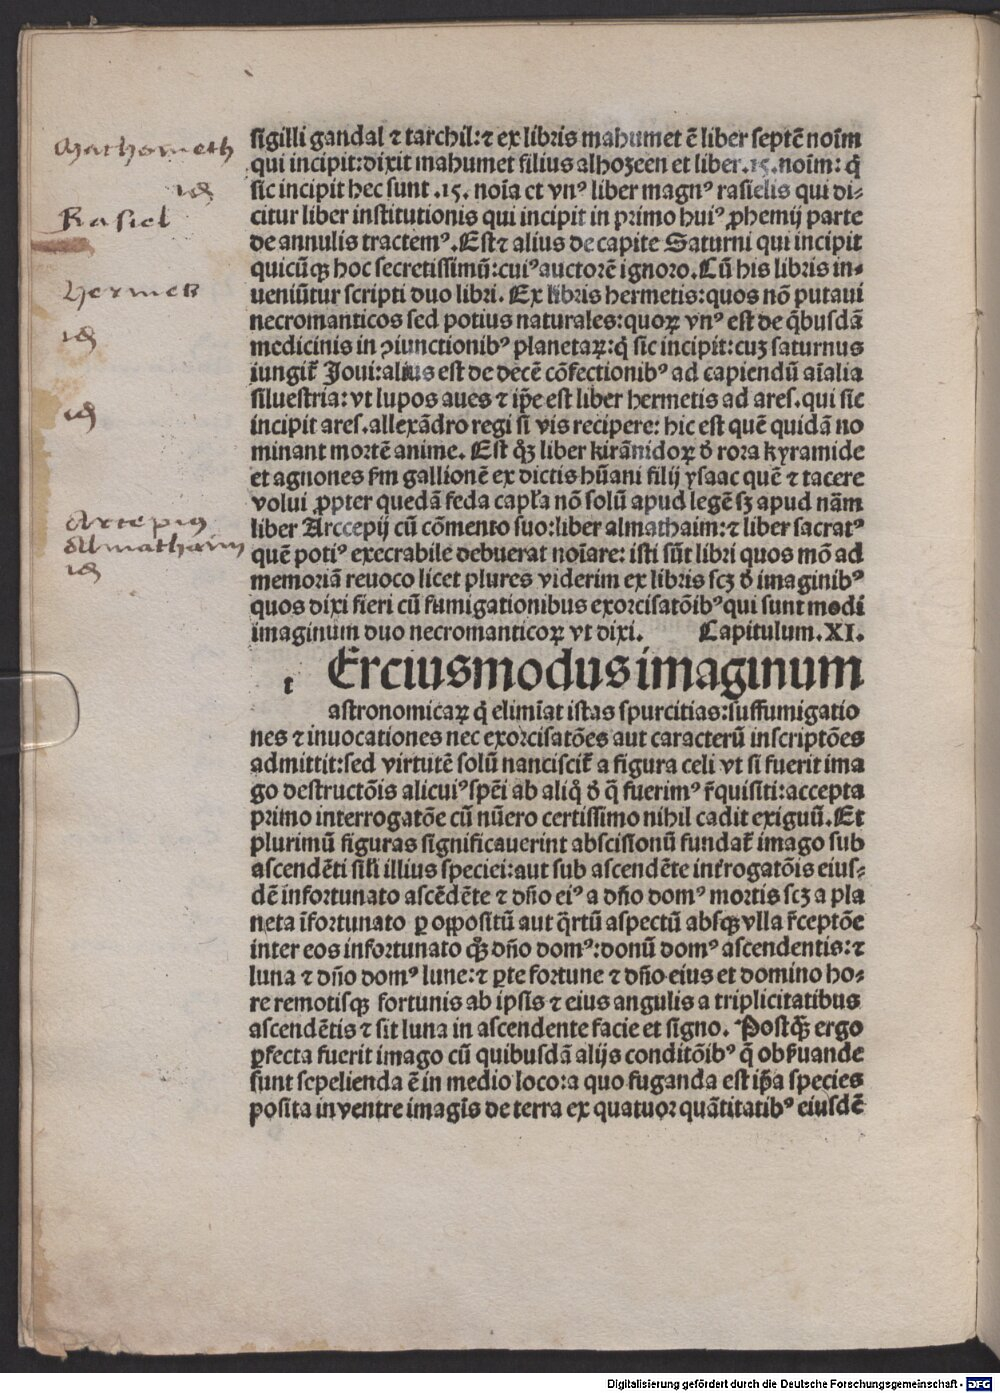 sigilli gandal ⁊ tarchil:⁊ ex libris mahumet ē liber septē noīm
qui incipit:dixit mahumet filius alhozeen et liber.15.noīm: q̄
sic incipit hec sunt .15. noīa et vnꝰ liber magnꝰ rasielis qui di-
citur liber institutionis qui incipit in primo huiꝰ ꝓhemij parte
de annulis tractemꝰ.Est⁊ alius de capite Saturni qui incipit
quicūqꝫ hoc secretissimū:cuiꝰauctorē ignoro.Cū his libris in-
ueniūtur scripti duo libri. Ex libris hermetis:quos nō putaui
necromanticos sed potius naturales:quoꝝ vnꝰ est de q̄busdā
medicinis in ꝯiunctionibꝰ planetaꝝ:q̄ sic incipit:cuꝫ saturnus
iungit̄ Joui:alius est de decē cōfectionibꝰ ad capiendū aīalia
siluestria: vt lupos aues ⁊ ip̄e est liber hermetis ad ares.qui sic
incipit ares.allexādro regi si vis recipere: hic est quē quidā no
minant mortē anime. Est qꝫ̄ liber kirāmidoꝝ ð rora kyramide
et agnones ẜm gallionē ex dictis hūani filij ysaac quē ⁊ tacere
volui ꝓpter quedā feda capl̄a nō solū apud legē sꝫ apud nām
liber Arccepij cū cōmento suo:liber almathaim:⁊ liber sacratꝰ
quē potiꝰ execrabile debuerat noīare: isti sūt libri quos mō ad
memoriā reuoco licet plures viderim ex libris scꝫ ð imaginibꝰ
quos dixi fieri cū fumigationibus exorcisatōibꝰ qui sunt modi
imaginum duo necromanticoꝝ vt dixi. Capitulum.XI.
t Ercius modus imaginum
astronomicaꝝ q̄ elimīat istas spurcitias:suffumigatio
nes ⁊ inuocationes nec exorcisatōes aut caracterū inscriptōes
admittit:sed virtutē solū nanciscit̄ a figura celi vt si fuerit ima
go destructōis alicuiꝰspēi ab aliq̊ ð q̄ fuerimꝰ r̄quisiti:accepta
primo interrogatōe cū nūero certissimo nihil cadit exiguū.Et
plurimū figuras significauerint abscisionū fundat̄ imago sub
ascendēti sil̄i illius speciei:aut sub ascendēte int̄rogatōis eius-
dē infortunato ascēdēte ⁊ dño eiꝰ a dño domꝰ mortis scꝫ a pla
neta īfortunato ꝑ oppositū aut q̄rtū aspectū absqꝫ vlla r̄ceptōe
inter eos infortunato qꝫ̄ dño domꝰ:donū domꝰ ascendentis:⁊
luna ⁊ dño domꝰ lune:⁊ ꝑte fortune ⁊ dño eius et domino ho-
re remotisqꝫ fortunis ab ipsis ⁊ eius angulis a triplicitatibus
ascendētis ⁊ sit luna in ascendente facie et signo. Postqꝫ̄ ergo
ꝑfecta fuerit imago cū quibusdā alijs conditōibꝰ q̄ obẜuande
sunt sepelienda ē in medio loco:a quo fuganda est ip̄a species
posita in ventre imagīs de terra ex quatuor quātitatibꝰ eiusdē
Mathometh
id
Rasiel
Hermes
id
id
Artepius
Almathaim
id
Digitalisierung gefördert durch die Deutsche Forschungsgemeinschaft - DFG